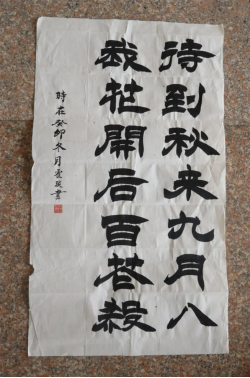 待到秋来九月八
我花開后百花殺
時在癸卯冬月書